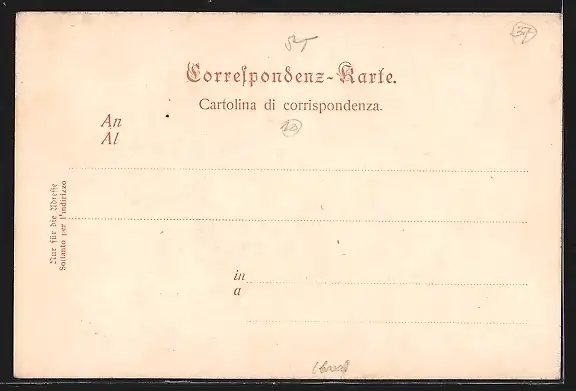 Correspondenz-Karte.
Cartolina di corrispondenza.
An
Al
Nur für die Adresse
Soltanto per l'indirizzo
in
a